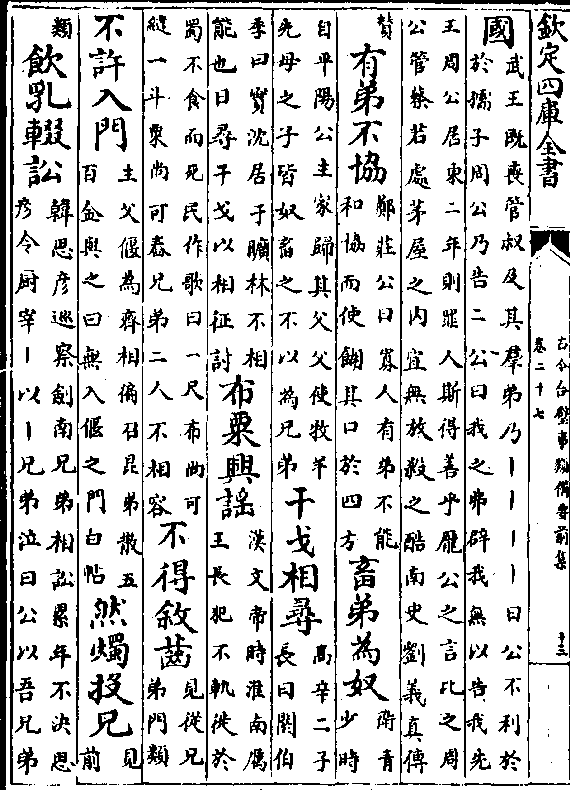 欽定四庫全書
古今合璧事類備要前集
卷二十七
十三
國
武王既喪管叔及其羣弟乃丨丨丨丨曰公不利於
於孺子周公乃告二公曰我之弗辟我無以告我先
王周公居東二年則罪人斯得善乎龎公之言比之周
公管蔡若處茅屋之内宜無放殺之酷南史劉義真傳
贊
有弟不協
鄭莊公曰寡人有弟不能
和協而使餬其口於四方
畜弟為奴
衛青
少時
自平陽公主家歸其父父使牧羊
先母之子皆奴畜之不以為兄弟
干戈相尋
髙辛二子
長曰閼伯
季曰實沈居于曠林不相
能也日尋干戈以相征討
布粟興謡
漢文帝時淮南厲
王長犯不軌徙於
蜀不食而死民作歌曰一尺布尚可
縫一斗粟尚可舂兄弟二人不相容
不得敘齒
見從兄
弟門類
不許入門
主父偃為齊相徧召昆弟散五
百金與之曰無入偃之門白帖
然燭投兄
見
前
類
飲乳輟訟
韓思彦巡察劍南兄弟相訟累年不決思
彦令厨宰丨以丨兄弟泣曰公以吾兄弟